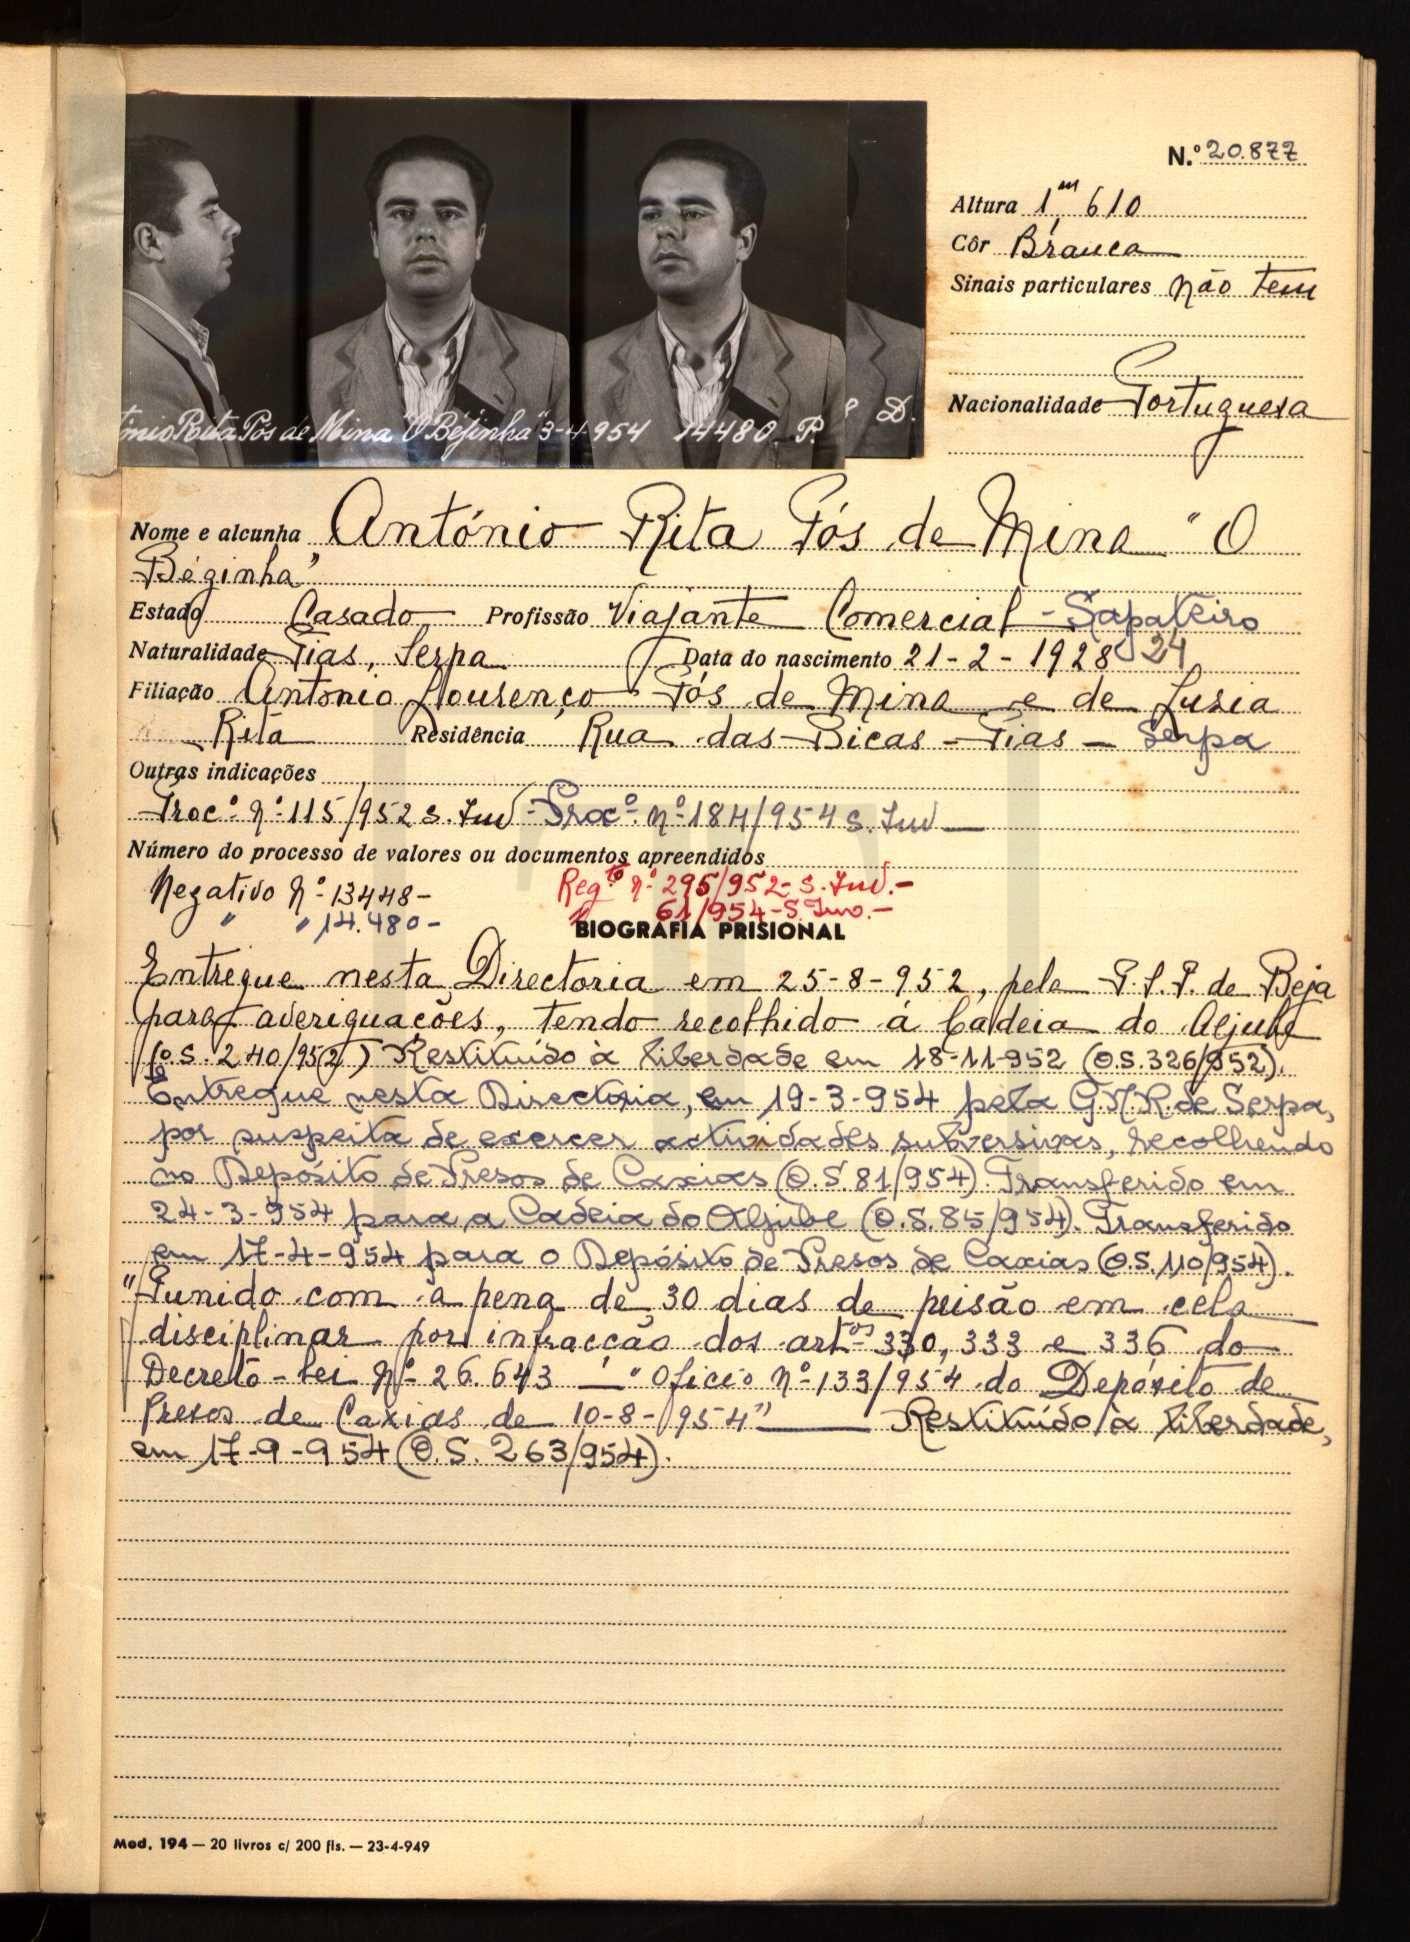 N.º 20.877
Altura 1,m 610
Côr Branca
Sinais particulares não tem
Nacionalidade Portuguesa
António Rita Pós de Mina "O Béjinha" 3-4-954 14480 P.
D.
Nome e alcunha António Rita Pós de Mina "O
Béginha"
Estado Casado Profissão Viajante Comercial - Sapateiro
Naturalidade Pias, Serpa Data do nascimento 21-2-1928 24
Filiação António Lourenço Pós de Mina e de Luzia
Rita Residência Rua das Bicas - Pias - Serpa
Outras indicações
Proc.º Nº 115/952 S. Inv - Proc.º nº 184/954 S. Inv
Número do processo de valores ou documentos apreendidos
Negativo Nº 13448- Reg.to nº 295/952- S. Inv.-
" " 14.480- " 61/954-S. Inv.-
BIOGRAFIA PRISIONAL
Entregue nesta Directoria em 25-8-952, pela P.S.P. de Beja
para averiguações, tendo recolhido á Cadeia do Aljube
(O.S. 240/952) Restituído à liberdade em 18-11-952 (O.S.326/952).
Entregue nesta Directoria, em 19-3-954 pela G.N.R. de Serpa,
por suspeita de exercer actividades subversivas, recolhendo
no Depósito de Presos de Caxias (O.S.81/954). Transferido em
24-3-954 para a Cadeia do Aljube (O.S.85/954). Transferido
em 17-4-954 para o Depósito de Presos de Caxias (O.S.110/954).
"Punido com a pena de 30 dias de prisão em cela
disciplinar por infracção dos art.os 330, 333 e 336 do
Decreto-lei Nº 26.643 — "Oficio nº 133/954 do Depósito de
Presos de Caxias de 10-8-954" — Restituído à liberdade,
em 17-9-954 (O.S. 263/954).
Mod. 194 — 20 livros c/ 200 fls. — 23-4-949